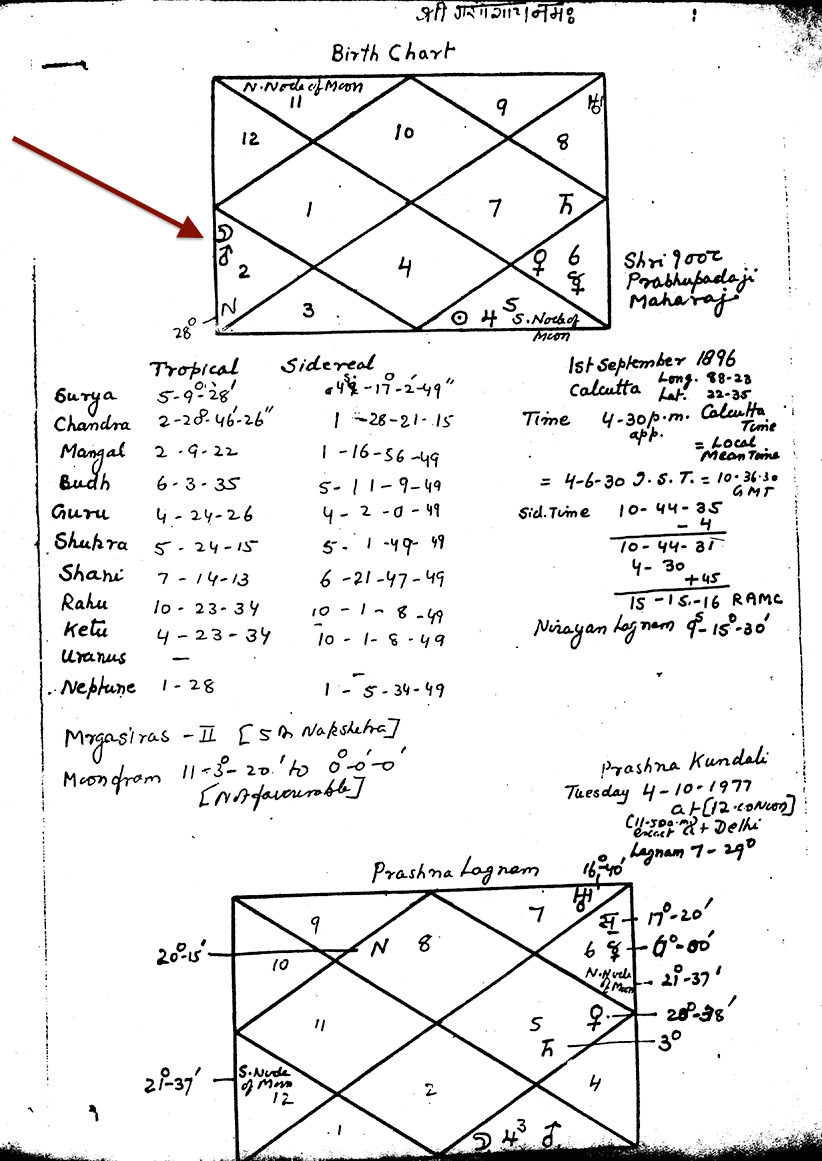 श्री गणेशाय नमः
Birth Chart
N. Node of Moon
11
9
12
10
8
1
7
♄
☽
♂
2
4
♀ 6
☿
N
3
☉ 4 5
S. Node of Moon
28°
Shri १००८
Prabhupadaji
Maharaj
Tropical Sidereal
Surya 5-9°-28'
Chandra 2-20°-46'-26" 1-28-21-15
Mangal 2-9-22 1-16-56-49
Budh 6-3-35 5-11-9-49
Guru 4-24-26 4-2-0-49
Shukra 5-24-15 5-1-49-49
Shani 7-14-13 6-21-47-49
Rahu 10-23-34 10-1-8-49
Ketu 4-23-34 10-1-8-49
Uranus —
Neptune 1-28 1-5-34-49
1st September 1896
Calcutta Long. 88-23
Lat. 22-35
Time 4-30 p.m. Calcutta
app. Time
= Local
Mean Time
= 4-6-30 I.S.T. = 10-36-30
GMT
Sid. Time 10-44-35
-4
10-44-31
4-30
+45
15-15-16 RAMC
Nirayan Lagnam 9ˢ-15°-30'
Mrgasiras -II [5th Nakshetra]
Moon from 11-3°-20' to 0°-0'-0'
[Not favourable]
Prashna Kundali
Tuesday 4-10-1977
at [12-00 Noon]
exact at Delhi
Lagnam 7-29°
Prashna Lagnam
16°-40'
9
7
20°-15'
N 8
10
17°-20'
6 ☿
N. Node
of Moon
21°-37'
11
5 ♀
♄
3°
21°-37'
S. Node
of Moon
12
2
4
1
☽ 4 3 ♂